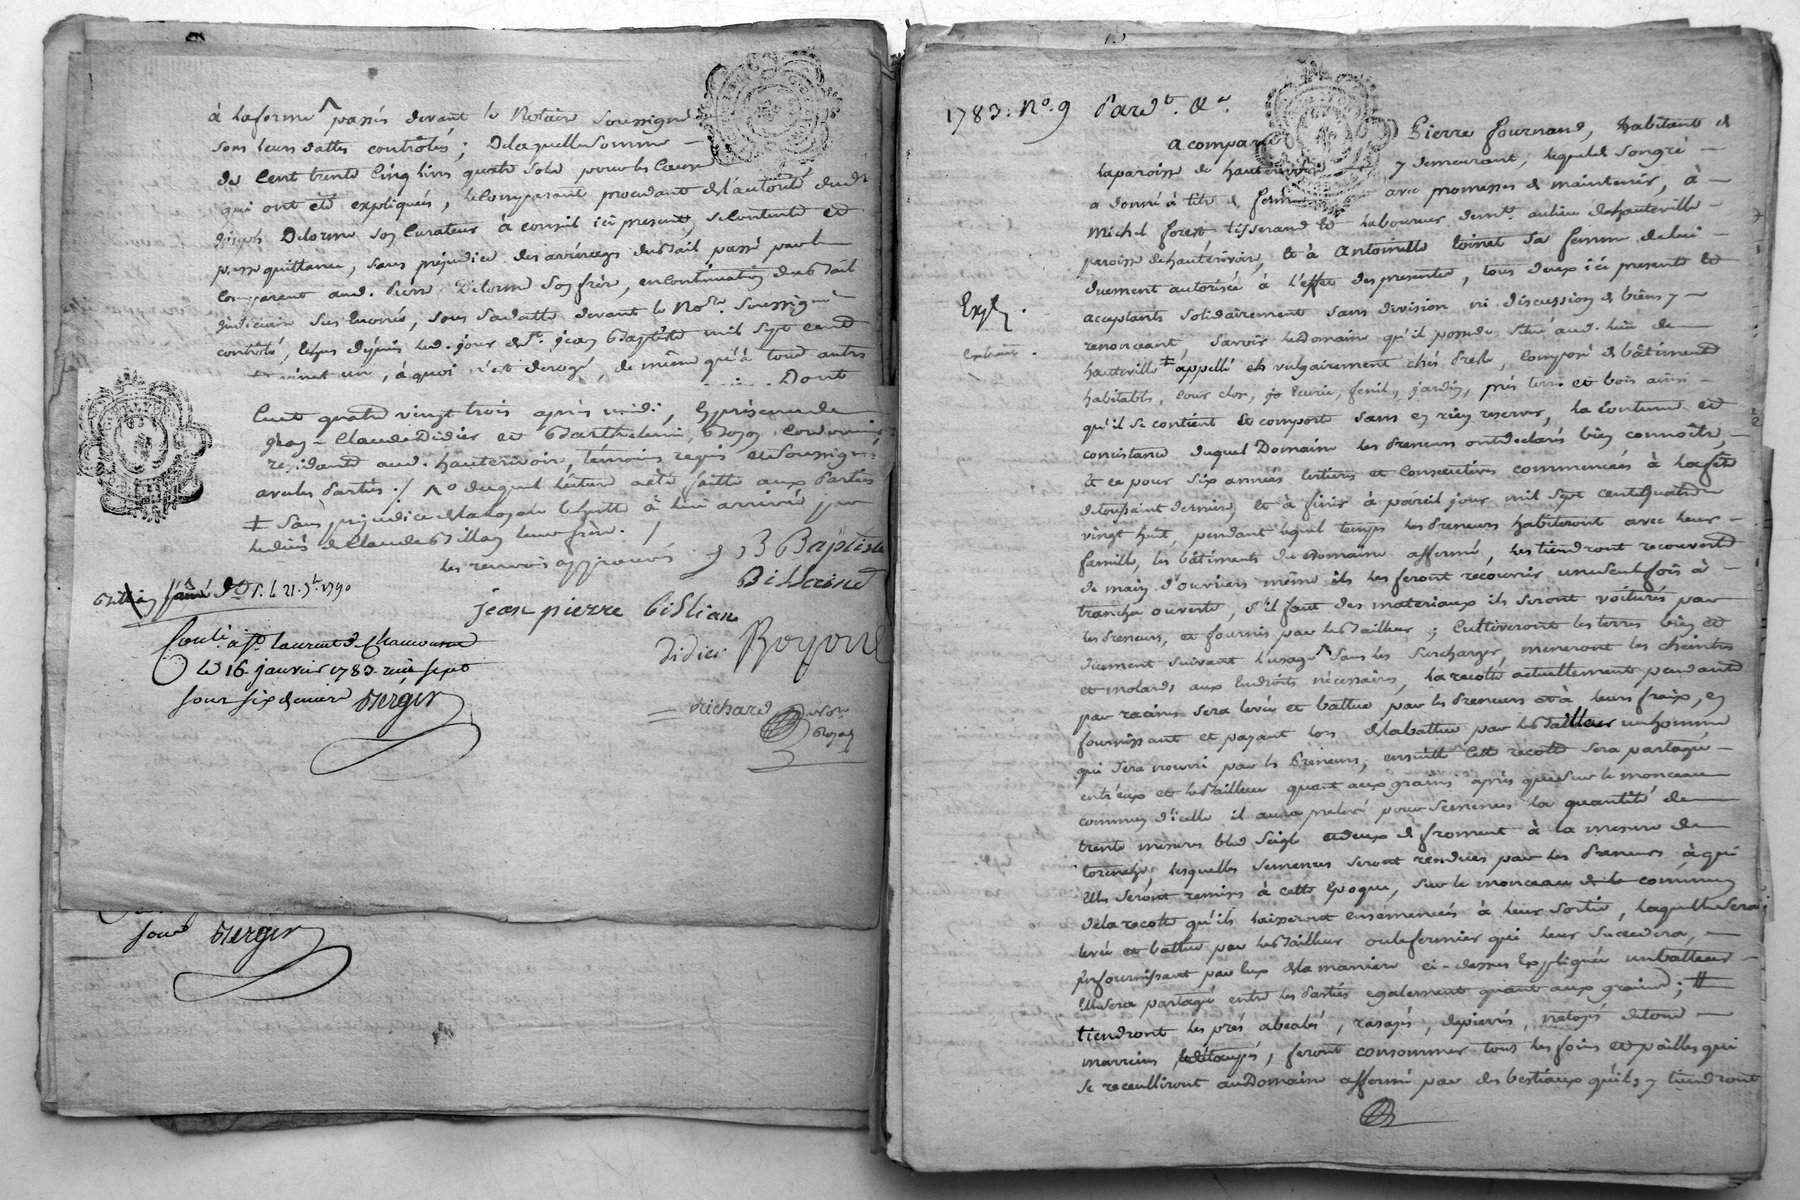 à la forme ^ passés devant le Notaire soussigné
sous leurs dattes contrôlés ; De laquelle somme
de Cent trente Cinq livres quatre sols pour les Causes
qui ont été expliquées, le Comparant procedant de l'autorité dud.
joseph Delorme son Curateur à conseil ici present, se contente et
passe quittance, sans préjudice des arrérages du Bail passé par le
Comparant aud. Pierre Delorme son frère, en continuation du Bail
judiciaire sus énoncé, sous sa datte devant le Nore. Soussigné
contrôlé, depuis led. jour de St. jean Baptiste mil sept cent
à quoi n'est derogé, de même qu'à tous autres
Dont
Cent quatre vingt trois après midi, En présence de
Claude Didier et Barthelemi Boyon Cordonnier,
residants aud. hauterivoire, témoins requis et soussignés
avec les Parties ./. ^ duquel lecture a été faitte aux Parties
‡ Sans préjudice de la à lui arrivé par
le décès de Claude Billian leur frère. /
les renvois approuvés
B Baptiste
Billiand
jean pierre billian
Didier Boyond
Richard
Nore.
Royal
Conlé. à St. laurent de Chamousset
le 16. janvier 1783. reçu sept
sous six deniers Berger
sous Berger
1783. No. 9 Pardt. &a.
A comparu Pierre fournand, habitant de
la paroisse de hauterivoire y demeurant, lequel de son gré
a donné à titre de ferme avec promesses de maintenir, à
Michel forest tisserand et laboureur demt. au lieu de hauteville
paroisse de hauterivoire, et à Antoinette loinet sa femme de lui
duement autorisée à l'effet des presentes, tous deux ici presents et
acceptants solidairement sans division ni discussion de biens y
Expé.
renonceant, savoir le domaine qu'il possede situé aud. lieu de
extrait.
hauteville ‡ appellé et vulgairement chés Presle, composé de bâtiments
habitables, cour clos, jo Ecurie, fenil, jardin, prés terres et bois ainsi
qu'il se contient et comporte sans en rien reserver, la contenue et
consistance duquel Domaine les Preneurs ont déclarés bien connoître,
Et ce pour six années entieres et consecutives commencées à la fête
de toussaint derniere, et à finir à pareil jour mil sept cent quatre
vingt huit, pendant lequel temps les Preneurs habiteront avec leur
famille, les bâtiments du Domaine affermé, les tiendront recouverts
de main d'ouvriers même ils les feront récouvrir une seule fois à
tranche ouverte, s'il faut des materiaux ils seront voiturés par
les Preneurs, et fournis par le Bailleur ; Cultiveront les terres bien et
duement suivant l'usage sans les surcharger, meneront les cheintres
et molards aux Endroits nécessaires, la recolte actuellement pendante
par racines sera levée et battue par les Preneurs et à leurs fraix, en
fournissant et payant lors de la battue par le Bailleur un homme
qui sera nourri par les Preneurs, ensuitte cette recolte sera partagée
entr'eux et le Bailleur quant aux grains après que sur le monceau
commun d'icelle il aura prelevé pour semences la quantité de
trente mesures bled seigle et deux de froment à la mesure de
lorenche, lesquelles semences seront rendues par les Preneurs à qui
Elles seront remises à cette Epoque, sur le monceau de le commun
de la recolte qu'ils laisseront ensemencés à leur sortie, laquelle sera
levée et battue par le Bailleur ou le fermier qui leur succedera,
en fournissant par Eux de la maniere ci-dessus Expliquée un batteur
Elle sera partagée entre les Parties egalement quant aux grains ; #
tiendront les prés abealés, rasagés, depierrés, netoyés de tous
mauvais, feront consommer tous les foins et pailles qui
se recueilliront au Domaine affermé par des bestiaux qu'ils y tiendront